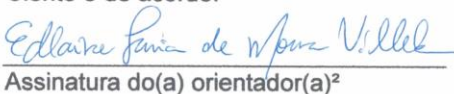 Ciente e de acordo:
Edlaine Faria de Moura Villela
Assinatura do(a) orientador(a)²